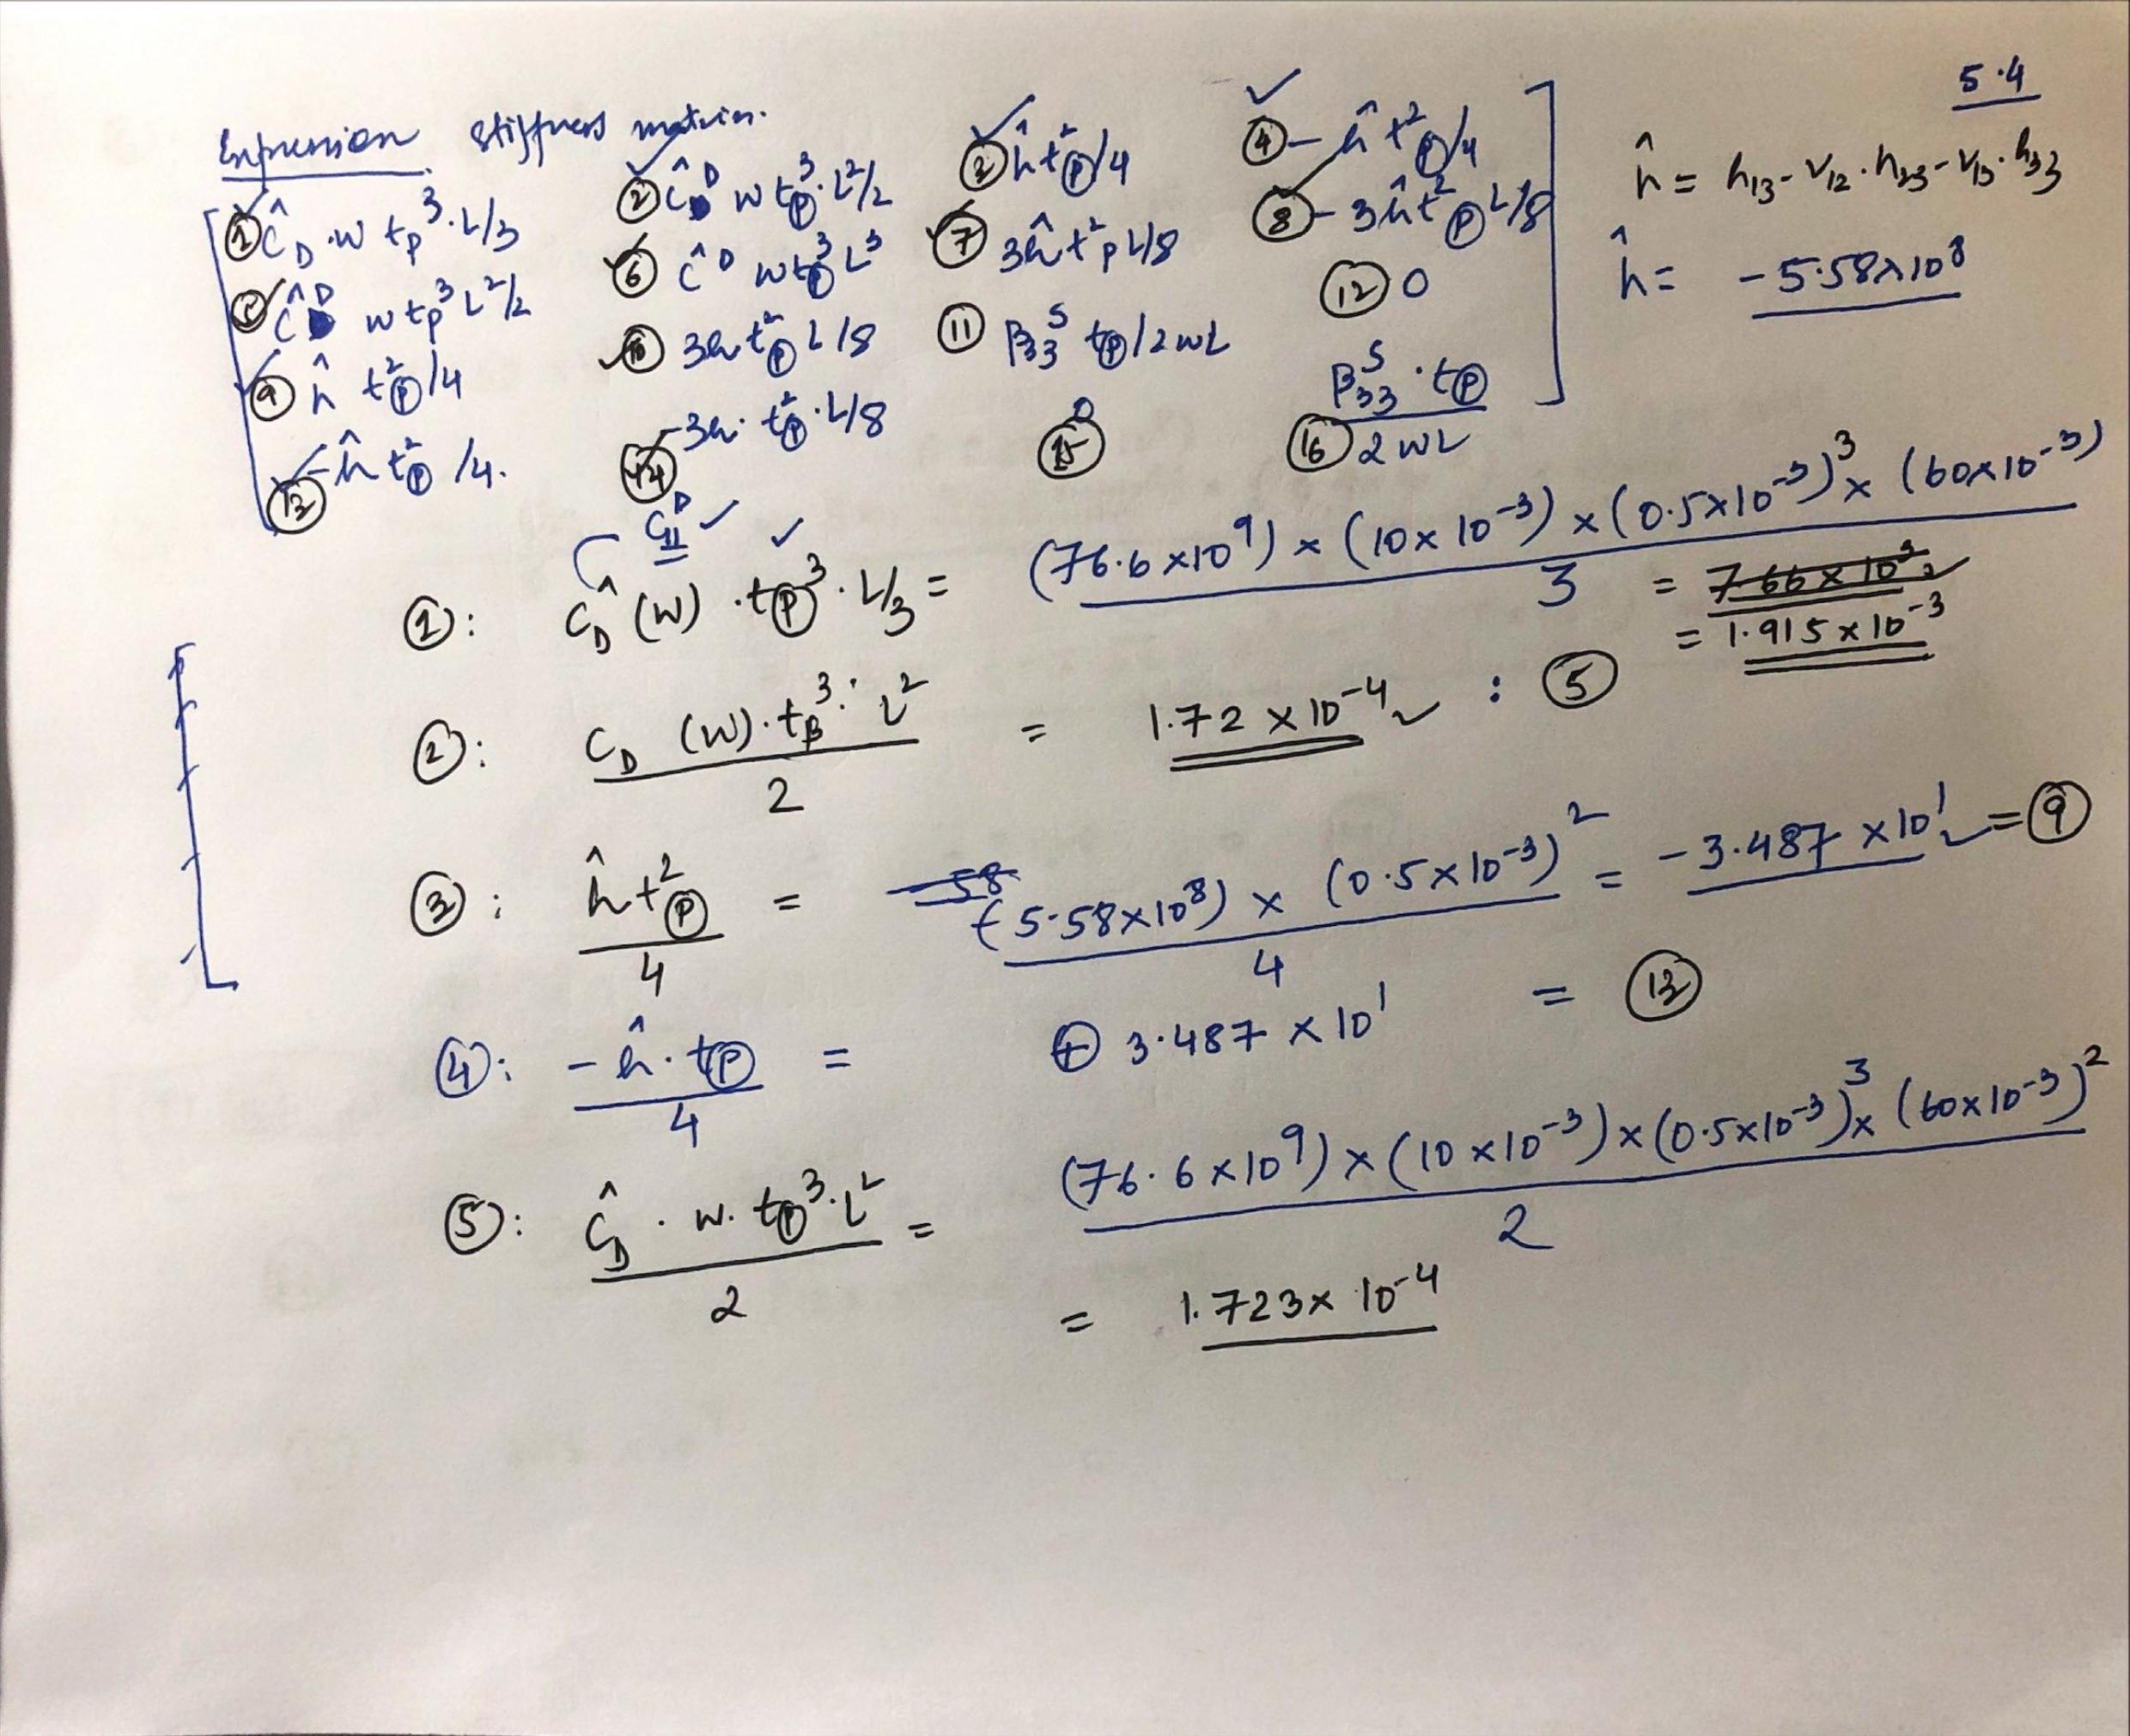 5.4
Expression stiffness matrix.
① Ĉ_D .w t_p³.L/3   ② Ĉ^D w t_p³.L²/2   ③ ĥ t²_p/4   ④ - ĥ t²_p/4
⑤ Ĉ^D w t_p³ L²/2   ⑥ Ĉ^D w t_p³ L³   ⑦ 3ĥ t²p L/8   ⑧ - 3ĥ t²_p L/8
⑨ ĥ t²_p/4   ⑩ 3h t²_p L/8   ⑪ β₃₃^S t_p/2wL   ⑫ 0
⑬ -ĥ t²_p /4.   ⑭ -3h. t²_p.L/8   ⑮ 0   ⑯ β₃₃^S . t_p / 2wL
ĥ = h₁₃ - ν₁₂.h₂₃ - ν₁₃.h₃₃
ĥ = -5.58×10⁸
C₁₁^D
①: Ĉ_D (W) .t_p³. L/3 = (76.6×10⁹) × (10×10⁻³) × (0.5×10⁻³)³ × (60×10⁻³) / 3 = 7.66×10²
= 1.915×10⁻³
②: C_D (W).t_p³.L² / 2 = 1.72×10⁻⁴ : ⑤
③: ĥ t²_p / 4 = 58 (-5.58×10⁸) × (0.5×10⁻³)² / 4 = -3.487×10¹ = ⑨
④: - ĥ.t_p / 4 = ⊕ 3.487×10¹ = ⑬
⑤: Ĉ_D . w. t_p³.L² / 2 = (76.6×10⁹) × (10×10⁻³) × (0.5×10⁻³)³ × (60×10⁻³)² / 2
= 1.723×10⁻⁴